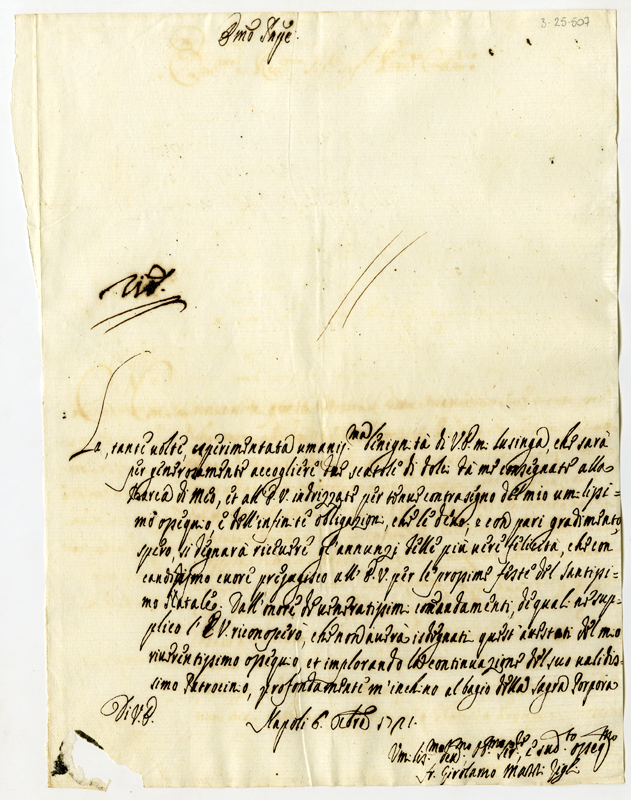 3-25-607
Emo Sigre.
La, tante volte, esperimentata umaniss.ma benignità di V.Em. lusinga, che sarà
per generosamente accogliere due scattole di dolci da me consegnate alla
Barca di Meo, et all'E.V. indrizzate per tenue contrasegno del mio umilissi=
mo ossequio, e dell'infinite obligazioni, che le devo, e con pari gradimento
spero, si degnarà ricevere gl'annunzj delle più vere felicità, che con
candidissimo cuore presagisco all'E.V. per le prossime feste del santissi=
mo Natale. Dall'onore de veneratissimi comandamenti, de quali ne sup=
plico l'E.V. riconoscerò, che non averà isdegnati questi attestati del mio
riverentissimo ossequio, et implorando la continuazione del suo validis=
simo Patrocinio, profondamente m'inchino al bagio della sagra Porpora
Di V.E.
Napoli 6. Xbre 1721.
Fr. Girolamo